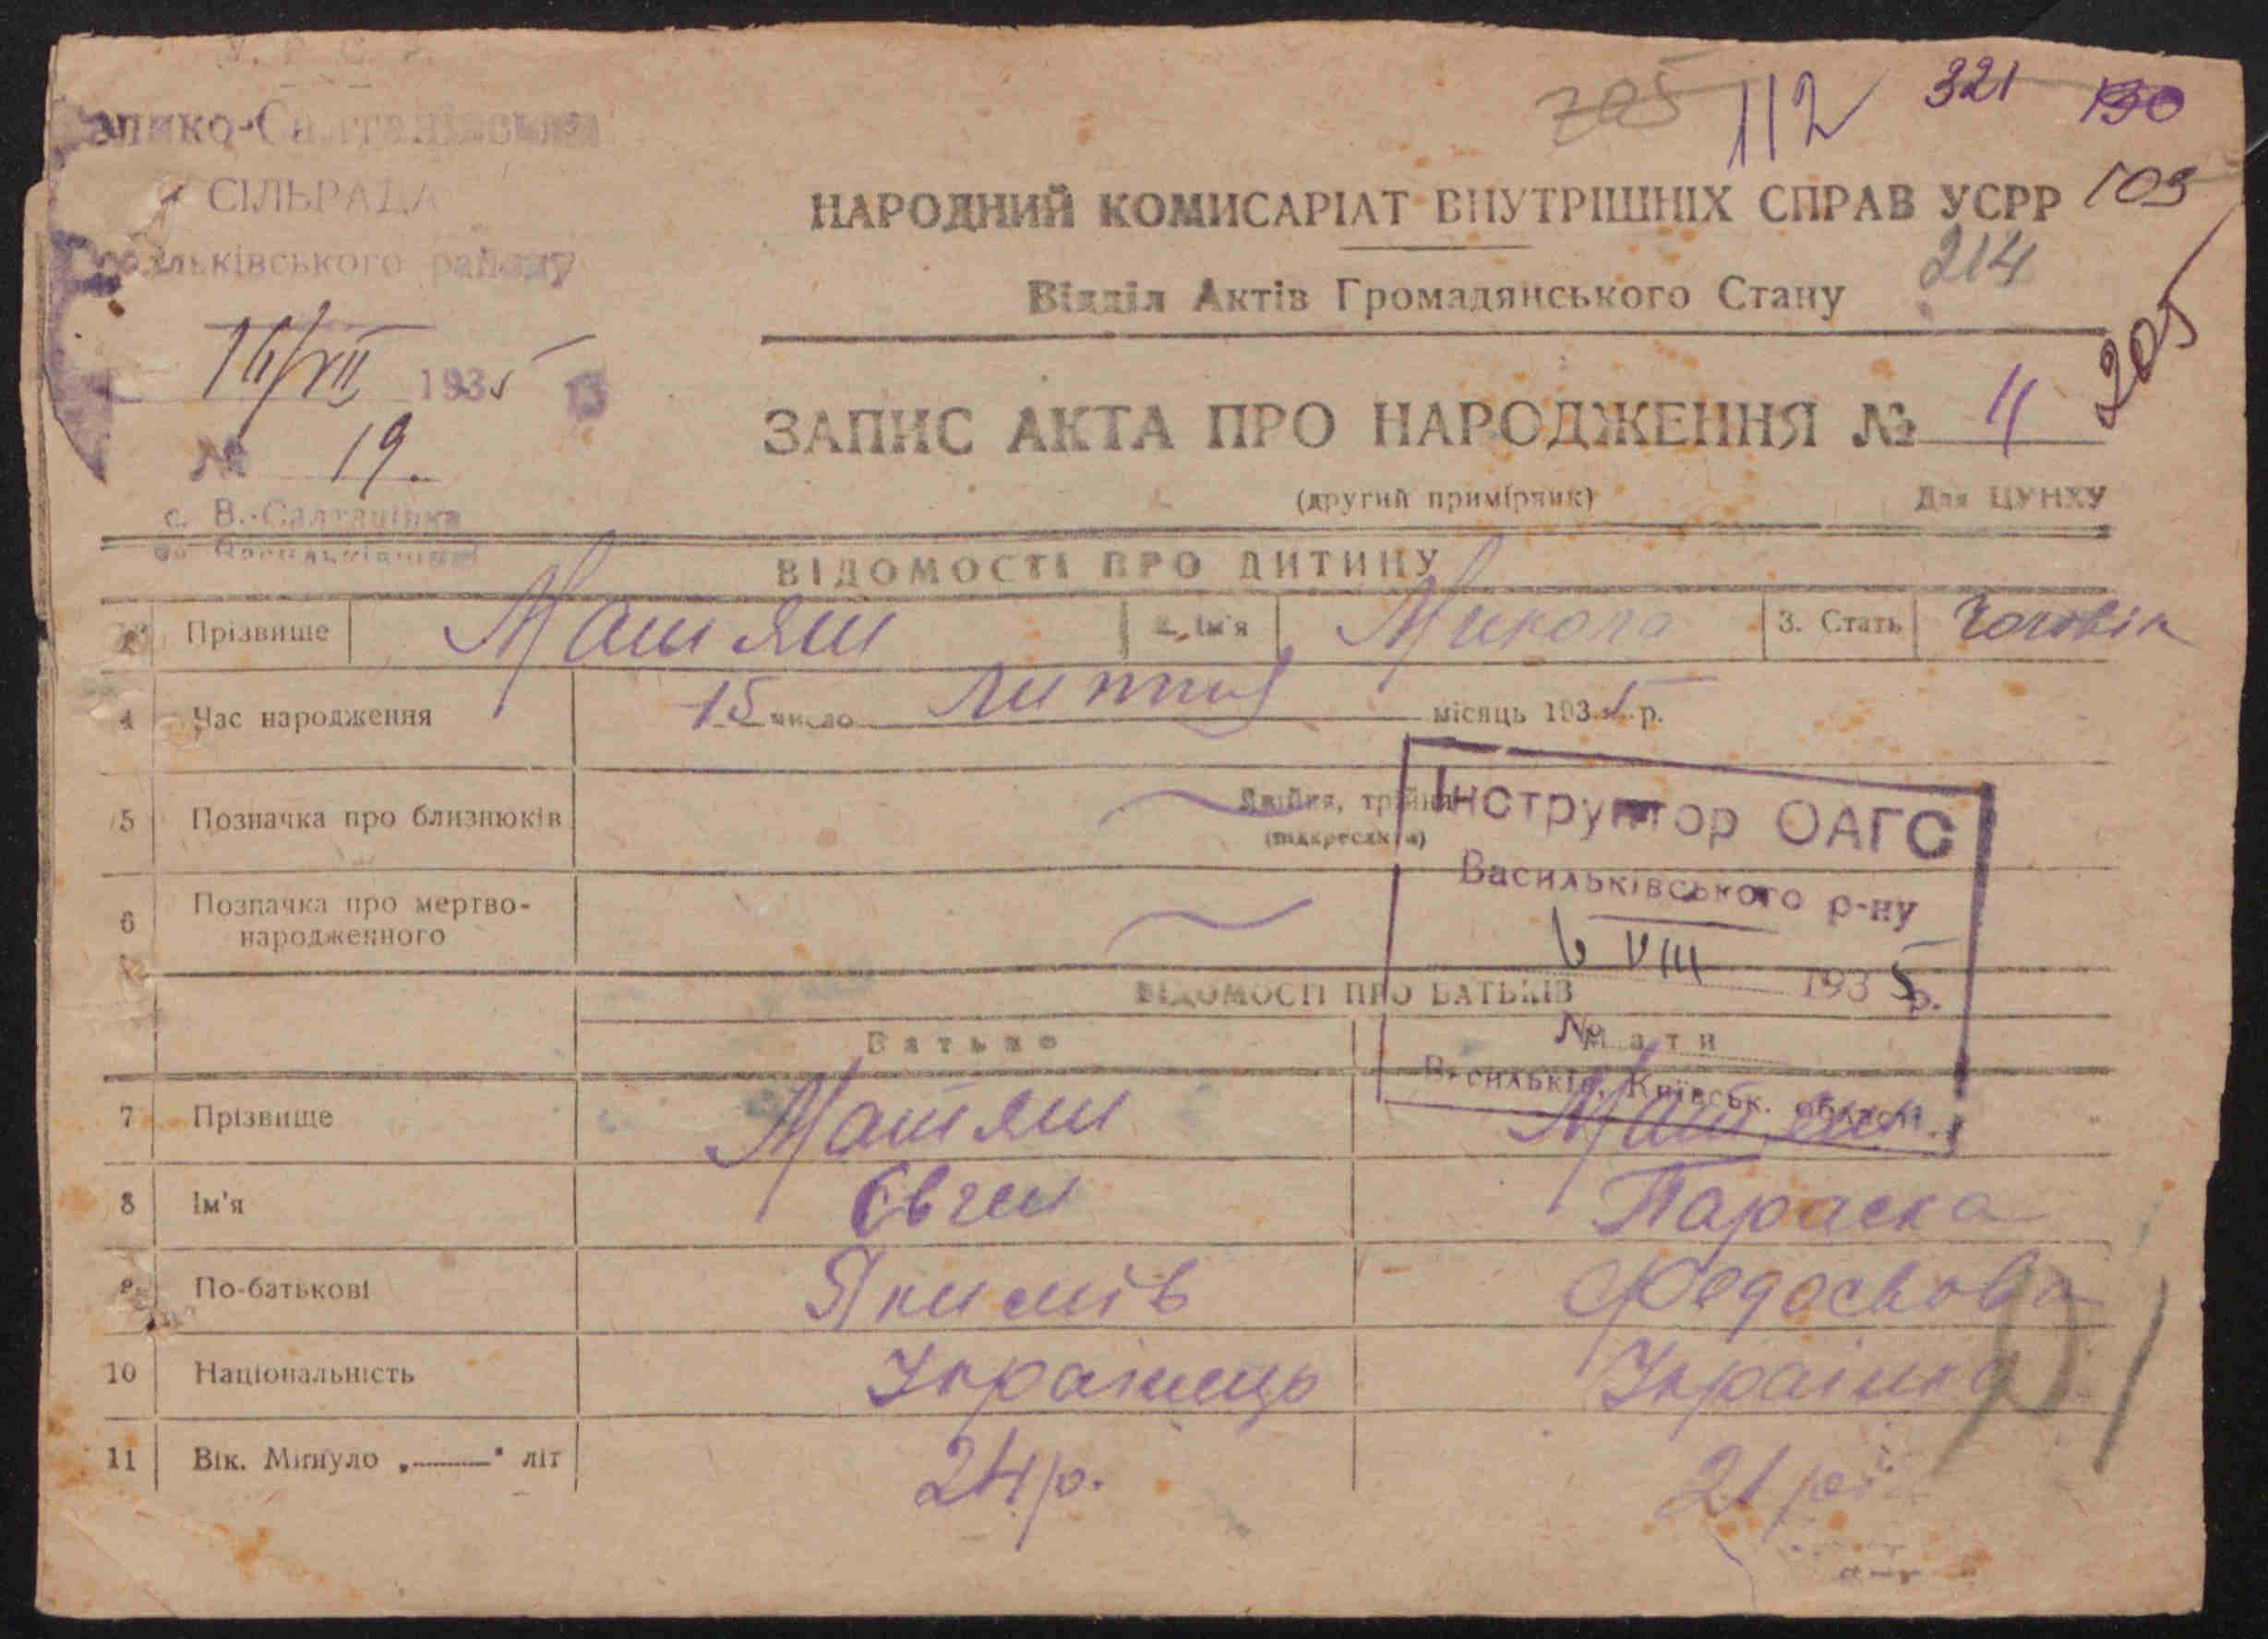 У. Р. С. Р.
Велико-Салтанівська
СІЛЬРАДА
Васильківського району
16/VII 1935
№ 19.
с. В.-Салтанівка
705 112 321 190
НАРОДНИЙ КОМИСАРІАТ ВНУТРІШНІХ СПРАВ УСРР 109
Відділ Актів Громадянського Стану 214
205
ЗАПИС АКТА ПРО НАРОДЖЕННЯ № 11
(другий примірник) Для ЦУНХУ
ВІДОМОСТІ ПРО ДИТИНУ
Прізвище Матяш 2. Ім'я Микола 3. Стать Чоловік
4 Час народження 15 число липня місяць 1935 р.
5 Позначка про близнюків Двійня, трійня
(підкреслити)
6 Позначка про мертво-
народженного
Інструктор ОАГС
Васильківського р-ну
6 VIII 1935 р.
№
Васильків, Київськ. області
ВІДОМОСТІ ПРО БАТЬКІВ
Батько Мати
7 Прізвище Матяш Матяш
8 Ім'я Євген Параска
9 По-батькові Якимів Федоськова
10 Національність Українець Українка
11 Вік. Минуло „——" літ 24 р. 21 рік